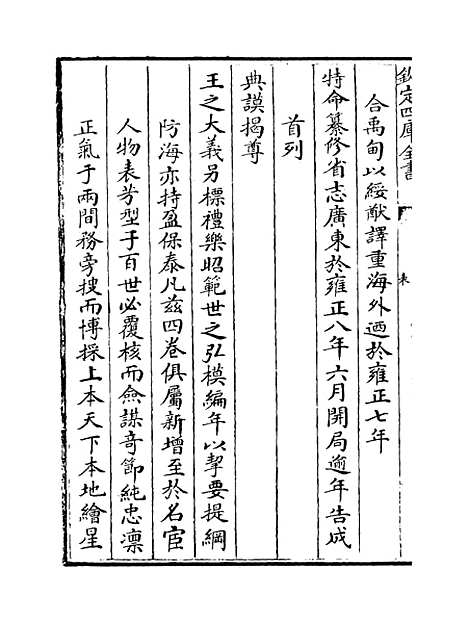 欽定四庫全書
表
合禹甸以綏猷譯重海外迺於雍正七年
特命纂修省志廣東於雍正八年六月開局逾年告成
首列
典謨揭尊
王之大義另標禮樂昭範世之弘模編年以挈要提綱
防海亦持盈保泰凡茲四卷俱屬新增至於名宦
人物表芳型于百世必覆核而僉謀奇節純忠凜
正氣于兩間務旁搜而博採上本天下本地繪星